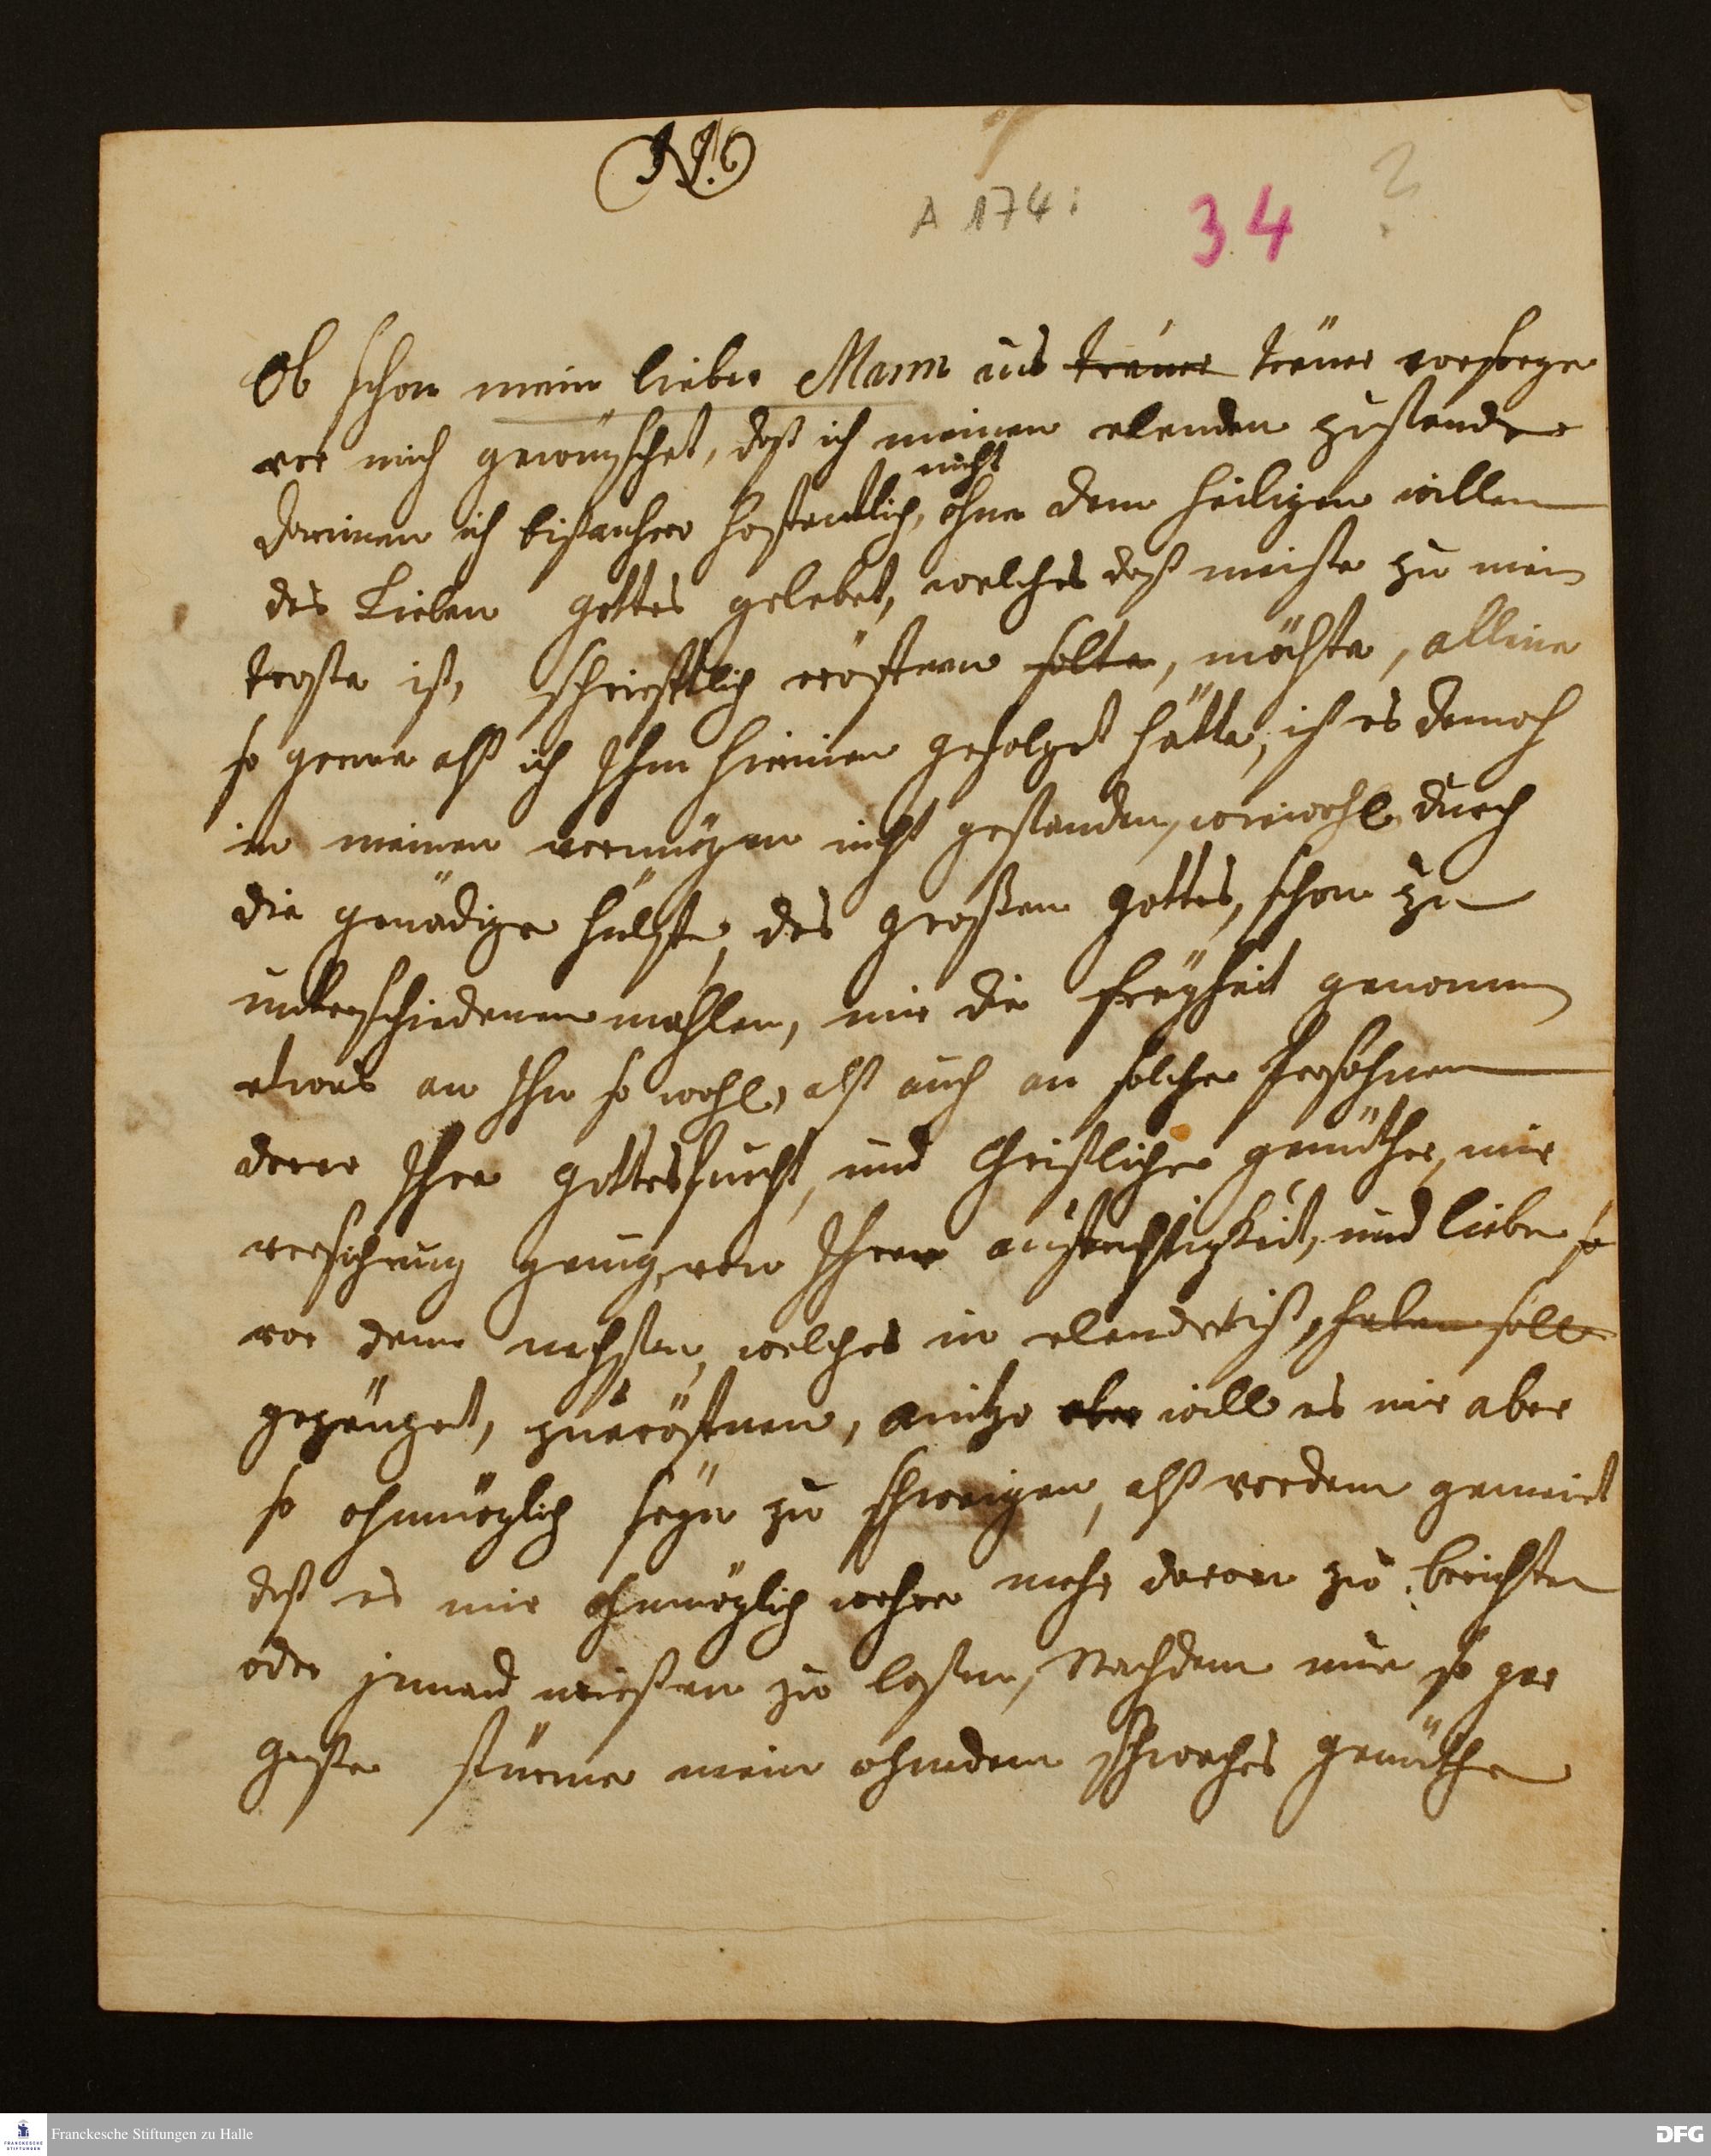 N.
A 174:
34
?
Ob schon mein lieber Mann aus treuer treuer vorsorge
vor mich gewünschet, daß ich meinen elenden zustande
darinnen ich bißanhero hoffentlich, nicht ohne dem heiligen willen
des Lieben Gottes gelebet, welches daß meiste zu mein
troste ist, schrifftlich eröffnen solte, möchte, alleine
so gerne alß ich Ihm hierinnen gefolget hätte, ist es dennoch
in meinen vermögen nicht gestanden, wiewohl durch
die genädige hülffe, des großen Gottes, schon zu
unterschiedenen mahlen, mir die freyheit genommen
etwas an Ihn so wohl, alß auch an solche Persohnen
derer Ihre Gottesfurcht, und Christliche gemüther, mir
versichrung genug, von Ihrer aufrichtigkeit, und liebe so
vor dem nechsten, welches in elende ist, haben soll
gezeuget, zu eröffnen, anitzo aber will es mir aber
so ohnmöglich seyn zu schweigen, alß vordem gemeint
daß es mir ohnmöglich wehre mehr davon zu berichten
oder jemand wießen zu laßen, Nachdem nun so gar
große stürme mein ohnedem schwaches gemüthe
Franckesche Stiftungen zu Halle
DFG